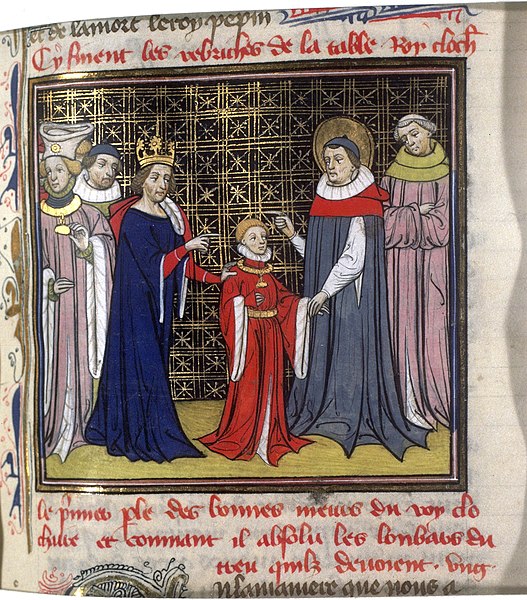 et de la mort le roy pepin
Cy finent les rebriches de la table Roy cloth
le p̃mier ple des bonnes meurs du roy clo
thaire et comment il absolu les lonbars du
treu quilz devoient. Ung
la maniere que nous a